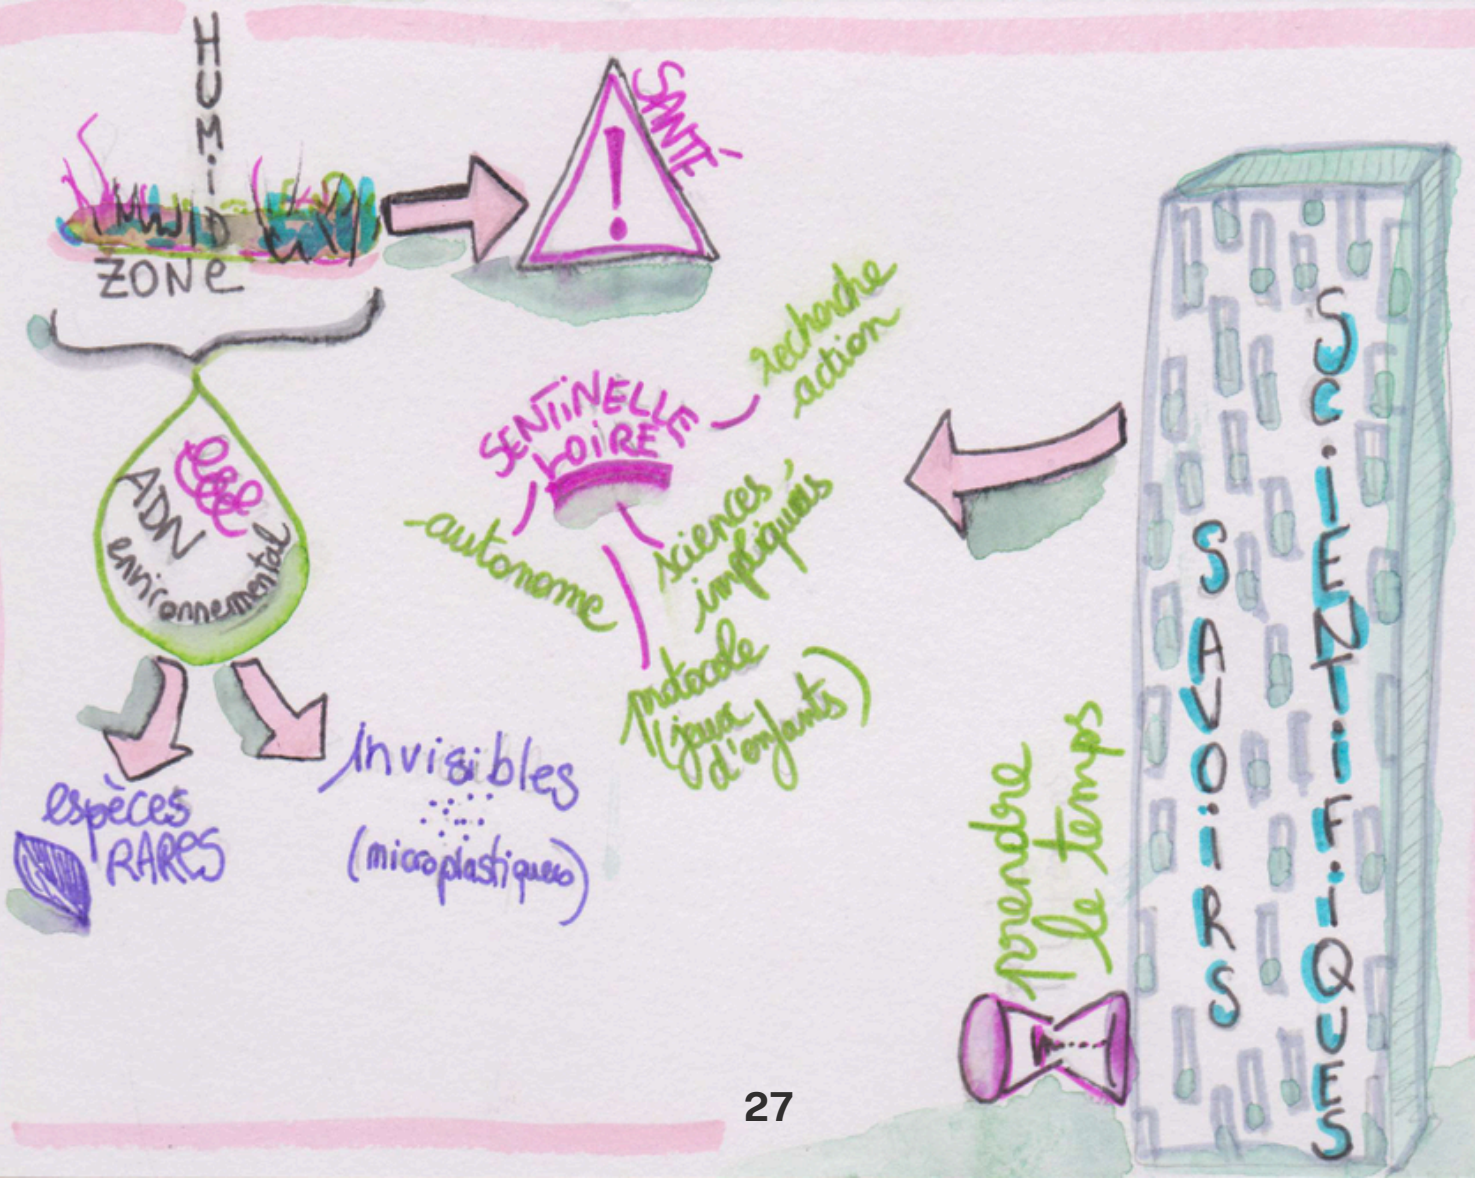 HUMiD
ZONE
SANTÉ
ADN
environnemental
espèces
RARES
invisibles
(microplastiques)
SENTiNELLE
LOiRE
recherche
action
autonome
sciences
impliquées
protocole
(jeux
d'enfants)
prendre
le temps
SAVOiRS
SCiENTiFiQUES
27